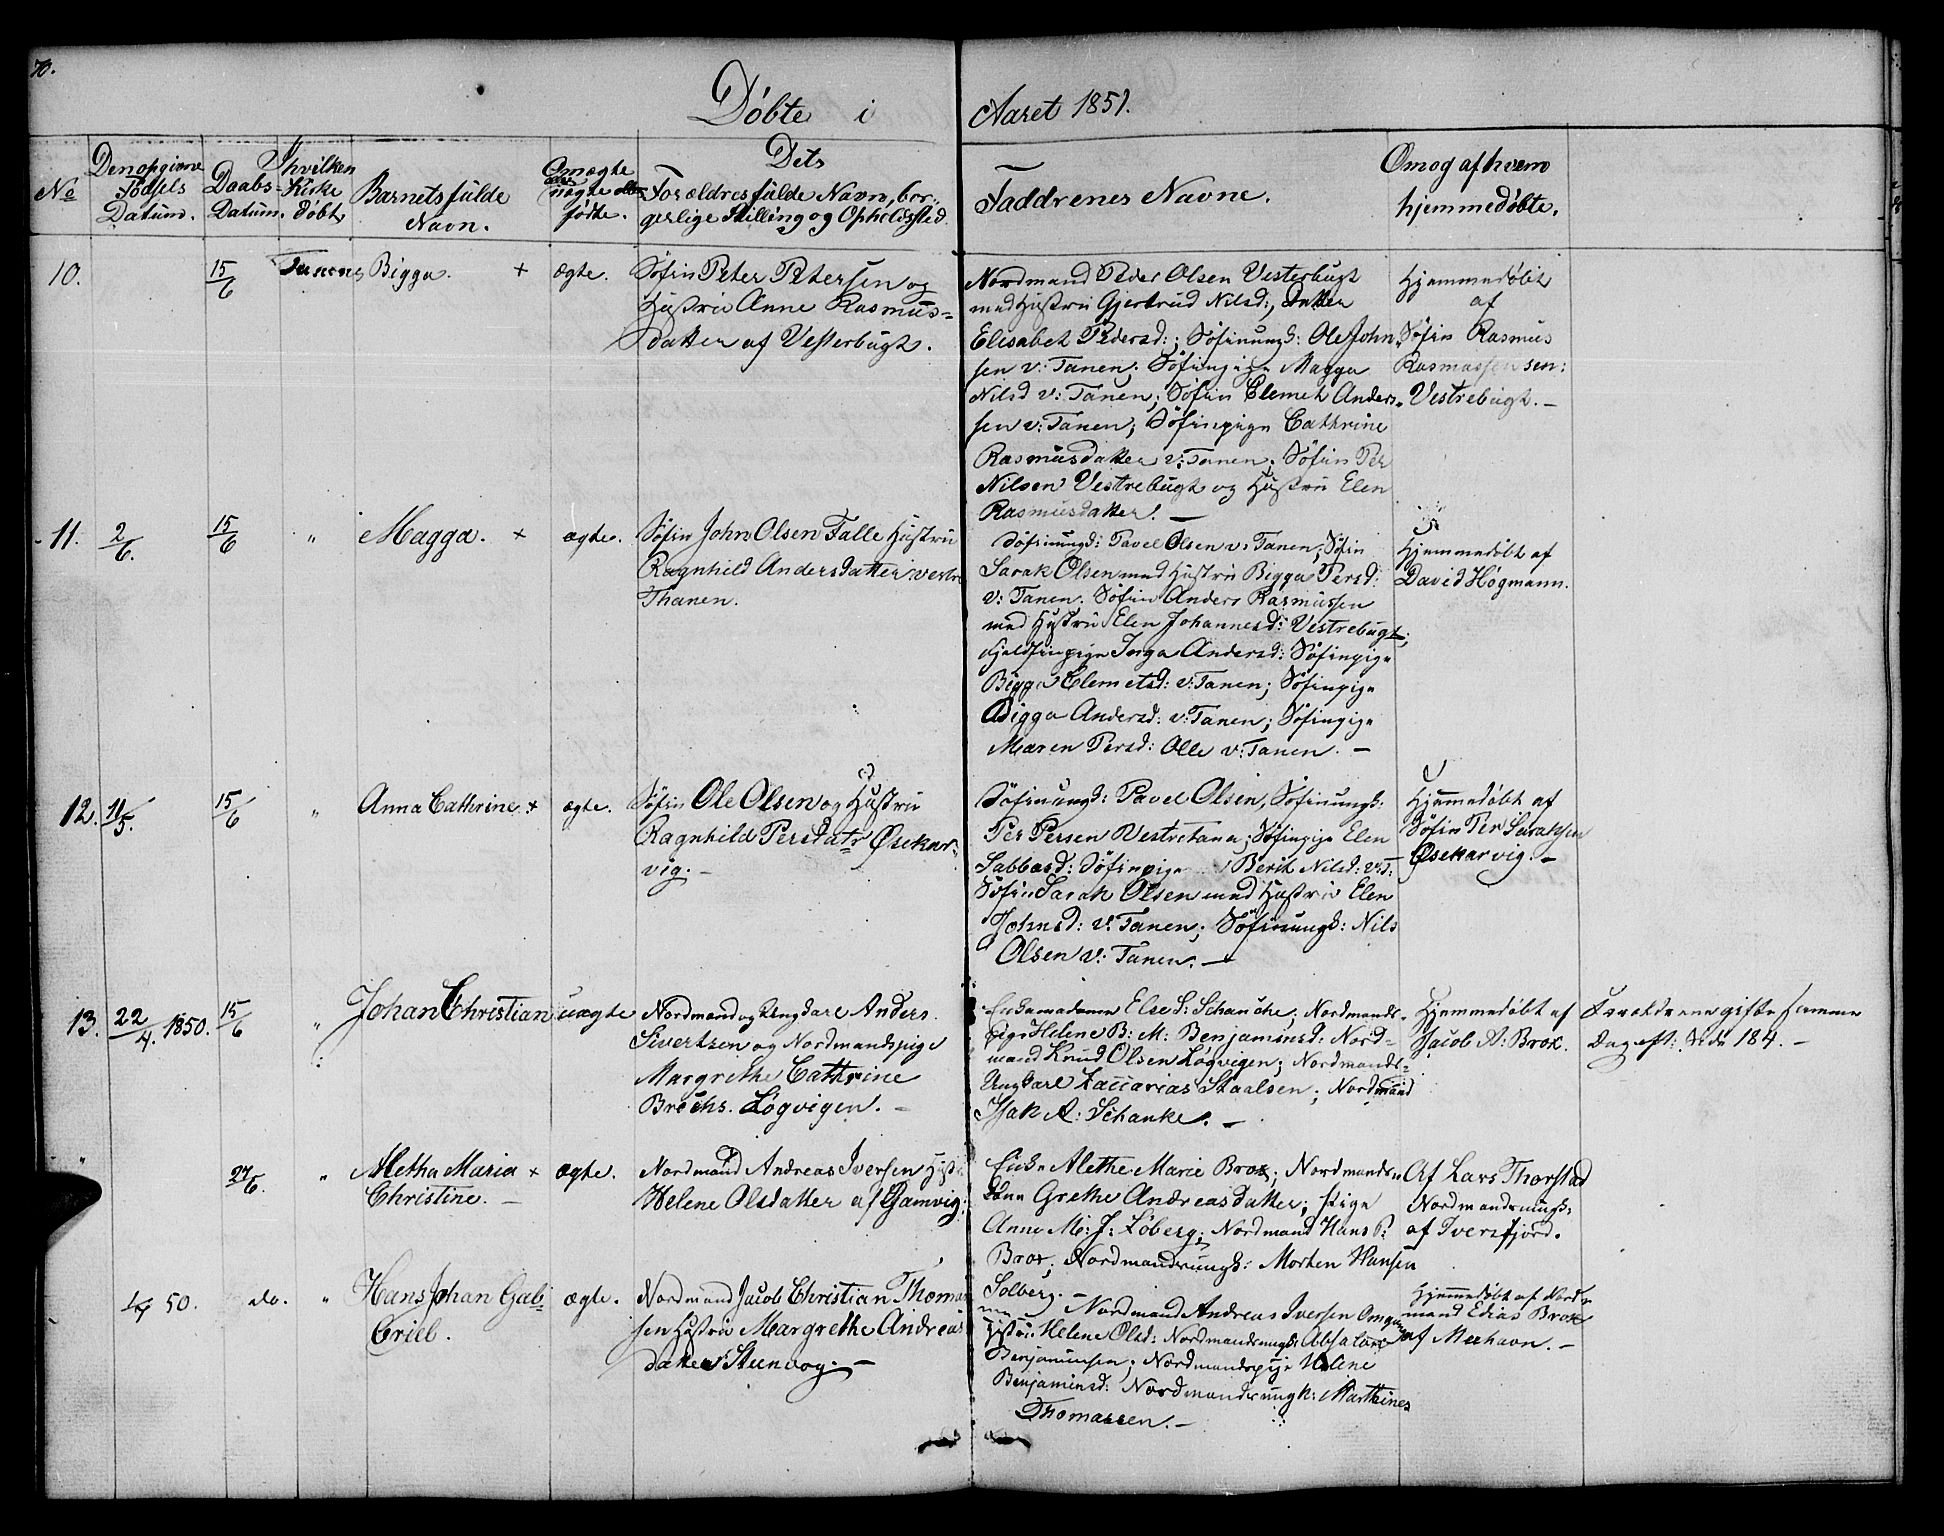 70.
Døbte i Aaret 1851.
No
Den opgivne
Fødsels
Datum.
Daabs-
Datum.
I hvilken
Kirke
døbt
Barnets fulde
Navn.
Om ægte
eller
uægte
fødte.
Dets
Forældres fulde Navn, bor-
gerlige Stilling og Opholdssted.
Faddrenes Navne.
Om og af hvem
hjemmedøbte.
10.
15/6
Tanens
Bigga. +
ægte.
Søfin Peter Petersen og
Hustru Anne Rasmus-
datter af Vesterbugt.
Nordmand Peder Olsen Vesterbugt
med Hustru Gjertrud Nilsd:, Datter
Elisabet Pedersd:; Søfinungk: Ole John-
sen v: Tanen; Søfinpige Magga
Nilsd v: Tanen; Søfin Clemet Anders-
sen v: Tanen; Søfinpige Cathrine
Rasmusdatter v: Tanen; Søfin Per
Nilsen Vestrebugt og Hustru Elen
Rasmusdatter. —
Hjemmedøbt
af
Søfin Rasmus
Rasmussen sen:
Vestrebugt. —
11.
2/6.
15/6
"
Magga. +
ægte.
Søfin John Olsen Falle Hustru
Ragnhild Andersdatter vestre
Thanen.
Søfinungk: Pavel Olsen v: Tanen; Søfin
Sarak Olsen med Hustru Bigga Persd:
v: Tanen. Søfin Anders Rasmussen
med Hustru Elen Johannesd: Vestrebugt;
Fjeldfinpige Inga Andersd: Søfinpige
Bigga Clemetsd: v: Tanen; Søfinpige
Bigga Andersd: v: Tanen; Søfinpige
Maren Persd: Olle v: Tanen. —
Hjemmedøbt af
David Høgmann.
12.
11/5.
15/6
"
Anna Cathrine. +
ægte.
Søfin Ole Olsen og Hustru
Ragnhild Persdatr Øsekar-
vig. —
Søfinungk: Pavel Olsen, Søfinungk:
Per Persen Vestretana; Søfinpige Elen
Sabbasd: Søfinpige Berit Nilsd: v: T:
Søfin Sarak Olsen med Hustru Elen
Johnsd: v: Tanen; Søfinungk: Nils
Olsen v: Tanen. —
Hjemmedøbt af
Søfin Per Saraksen
Øsekarvig. —
13.
22/4. 1850.
15/6
"
Johan Christian
uægte
Nordmand og Ungkarl Anders
Sivertsen og Nordmandspige
Margrethe Cathrine
Brechs. Løgvigen. —
Enkemadame Else S: Schanche; Nordmands-
pige Helene B: M: Benjaminsd: Nord-
mand Knud Olsen Løgvigen; Nordmands-
Ungkarl Zaccarias Staalsen; Nordmand
Isak A: Schanke. —
Hjemmedøbt af
Jacob A: Brox.
Forældrene gifte samme
Dag eft: Side 184. —
24/6.
"
Aletha Maria +
Christine. —
ægte.
Nordmand Andreas Iversen Hustr
Helene Olsdatter af Gamvig.
Enke Alethe Marie Brox; Nordmands-
kone Grethe Andreasdatter; Pige
Anne M: J: Løberg; Nordmand Hans P:
Brox; Nordmandsungk: Morten Hansen
Solberg. —
Af Lars Thorstad
Nordmandsungk:
af Iversfjord.
50.
do.
"
Hans Johan Gab-
riel.
ægte.
Nordmand Jacob Christian Thomas
sen Hustru Margrethe Andreas
datter Steenvog. —
Nordmand Andreas Iversen Omgang
Hustru: Helene Olsd: Nordmandsungk: Absalon
Benjaminsen; Nordmandspige Helene
Benjaminsd: Nordmandsungk: Marthines
Thomassen. —
Hjemmedøbt af Nord-
mand Edias Brox
af Mehavn. —